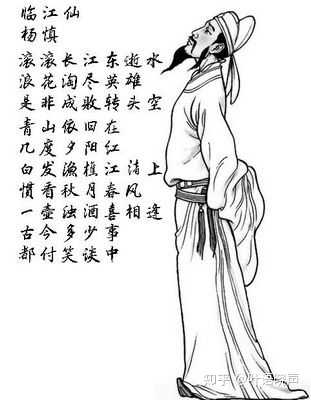 临江仙
杨慎
滚滚长江东逝水
浪花淘尽英雄
是非成败转头空
青山依旧在
几度夕阳红
白发渔樵江渚上
惯看秋月春风
一壶浊酒喜相逢
古今多少事
都付笑谈中
知乎